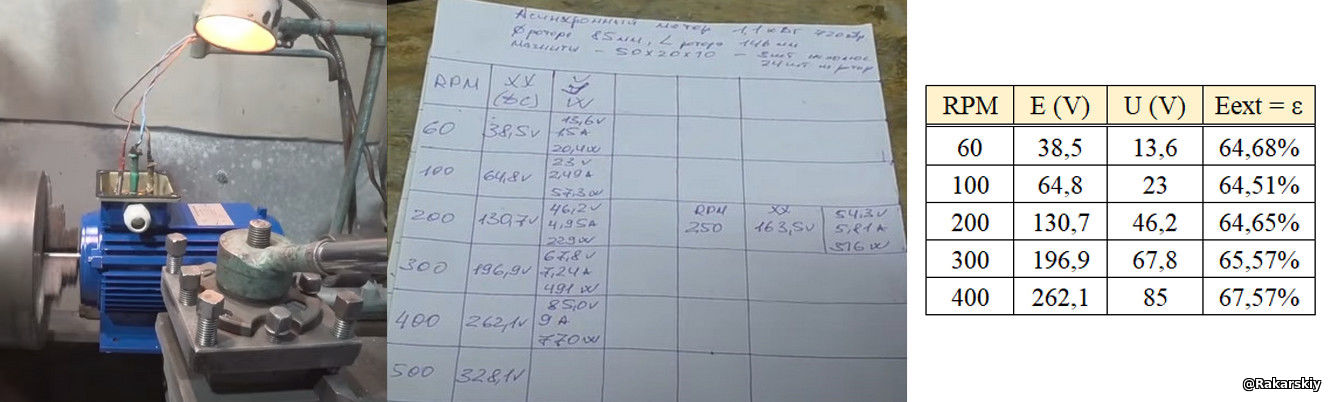 Асинхронный мотор 1,1 кВт 720об
Ф ротора 85мм, L ротора 146мм
Магниты - 50x20x10 - 3шт на полюс
24шт на ротор
RPM XX (DC) V W
60 38,5v 13,6v 15A 20,4W
100 64,8v 23v 2,49A 57,3W
200 130,7v 46,2v 4,95A 229W
RPM 250 XX 163,5v 54,3v 5,81A 316W
300 196,9v 67,8v 7,24A 491W
400 262,1v 85,0v 9A 770W
500 328,1v
RPM E (V) U (V) Eext = ε
60 38,5 13,6 64,68%
100 64,8 23 64,51%
200 130,7 46,2 64,65%
300 196,9 67,8 65,57%
400 262,1 85 67,57%
@Rakarskiy